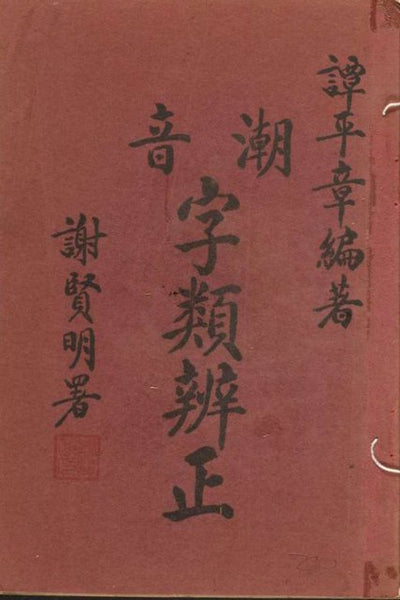 譚平章編著
潮音
字類辨正
謝賢明署